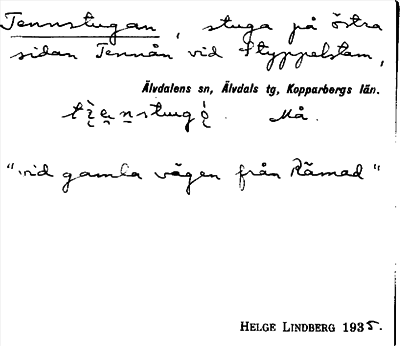 Tennstugan, stuga på östra
sidan Tennån vid Styppelstam,
Älvdalens sn, Älvdals tg, Kopparbergs län.
Må.
"vid gamla vägen från Råmad"
HELGE LINDBERG 1935.